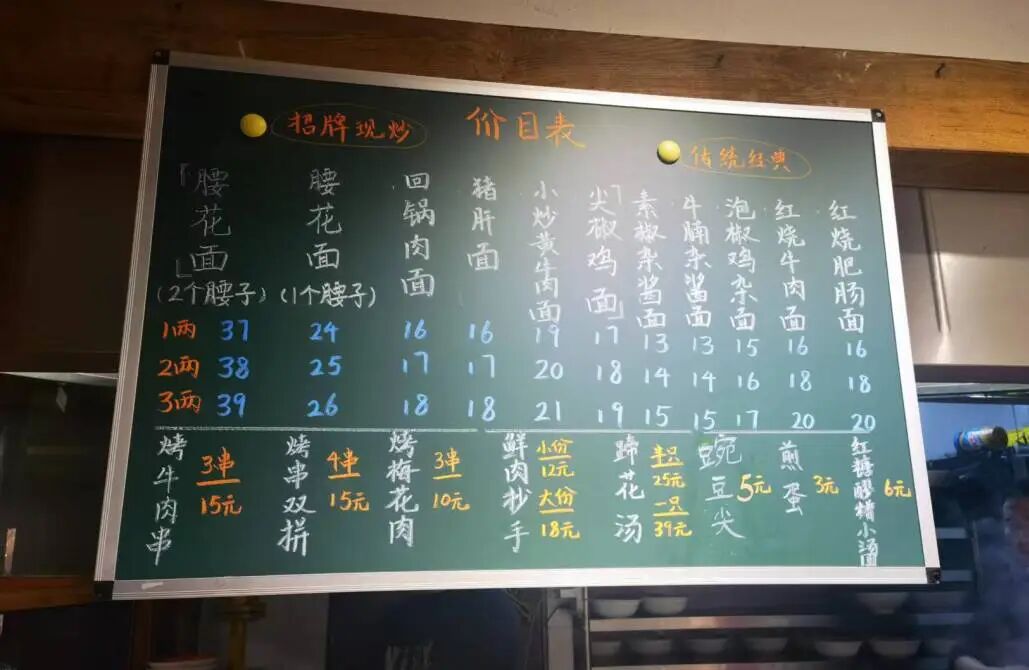 价目表
招牌现炒
传统经典
「腰花面」(2个腰子)
腰花面(1个腰子)
回锅肉面
猪肝面
小炒黄牛肉面
「尖椒鸡面」
素椒杂酱面
牛腩杂酱面
泡椒鸡杂面
红烧牛肉面
红烧肥肠面
1两 37 24 16 16 19 17 13 13 15 16 16
2两 38 25 17 17 20 18 14 14 16 18 18
3两 39 26 18 18 21 19 15 15 17 20 20
烤牛肉串 3串 15元
烤串双拼 4串 15元
烤梅花肉 3串 10元
鲜肉抄手 小份 12元 大份 18元
蹄花汤 半只 25元 一只 39元
豌豆尖 5元
煎蛋 3元
红糖醪糟小汤圆 6元